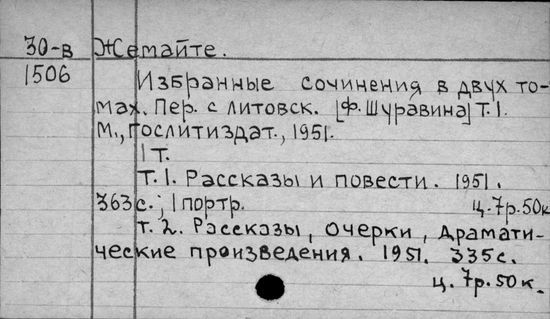 30-в Жемайте.
1506 Избранные сочинения в двух то-
мах. Пер. с литовск. [Ф. Шуравина] Т. 1.
М., Гослитиздат., 1951.
1 т.
Т. 1. Рассказы и повести. 1951.
363 с.; 1 портр. ц. 7р. 50к
т. 2. Рассказы, очерки, драмати-
ческие произведения. 1951. 335 с.
ц. 7р. 50 к.